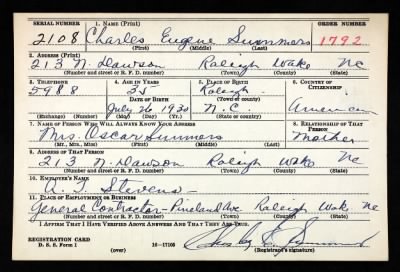 SERIAL NUMBER 1. NAME (Print) ORDER NUMBER
2108 Charles Eugene Summers 1792
(First) (Middle) (Last)
2. ADDRESS (Print)
213 N. Dawson Raleigh Wake NC
(Number and street or R. F. D. number) (Town) (County) (State)
3. TELEPHONE 4. AGE IN YEARS 5. PLACE OF BIRTH 6. COUNTRY OF CITIZENSHIP
5988 35 Raleigh
DATE OF BIRTH (Town or county)
July 26 N.C. American
(Exchange) (Number) (Mo.) (Day) (Yr.) (State or country)
7. NAME OF PERSON WHO WILL ALWAYS KNOW YOUR ADDRESS 8. RELATIONSHIP OF THAT PERSON
Mrs. Oscar Summers Mother
(Mr., Mrs., Miss) (First) (Middle) (Last)
9. ADDRESS OF THAT PERSON
213 N. Dawson Raleigh Wake NC
(Number and street or R. F. D. number) (Town) (County) (State)
10. EMPLOYER'S NAME
Stevens
11. PLACE OF EMPLOYMENT OR BUSINESS
General Contractor - Pineland Ave Raleigh Wake NC
(Number and street or R. F. D. number) (Town) (County) (State)
I AFFIRM THAT I HAVE VERIFIED ABOVE ANSWERS AND THAT THEY ARE TRUE.
REGISTRATION CARD
D. S. S. Form 1 (over) 16-17105 (Registrant's signature)